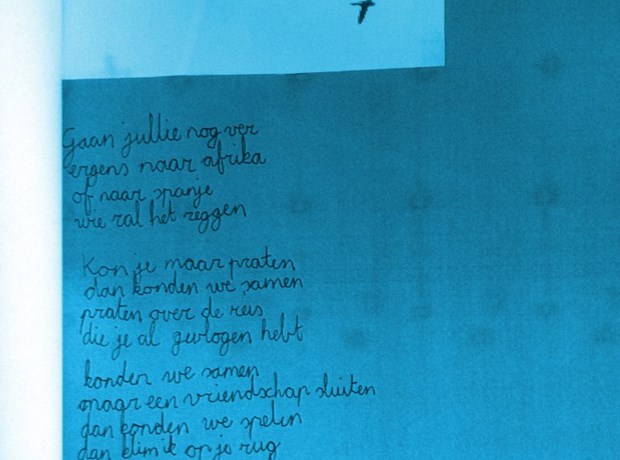 Gaan jullie nog ver
ergens naar afrika
of naar spanje
wie zal het zeggen
Kon je maar praten
dan konden we samen
praten over de reis
die je al gevlogen hebt
konden we samen
maar een vriendschap sluiten
dan konden we spelen
dan klim ik op je rug